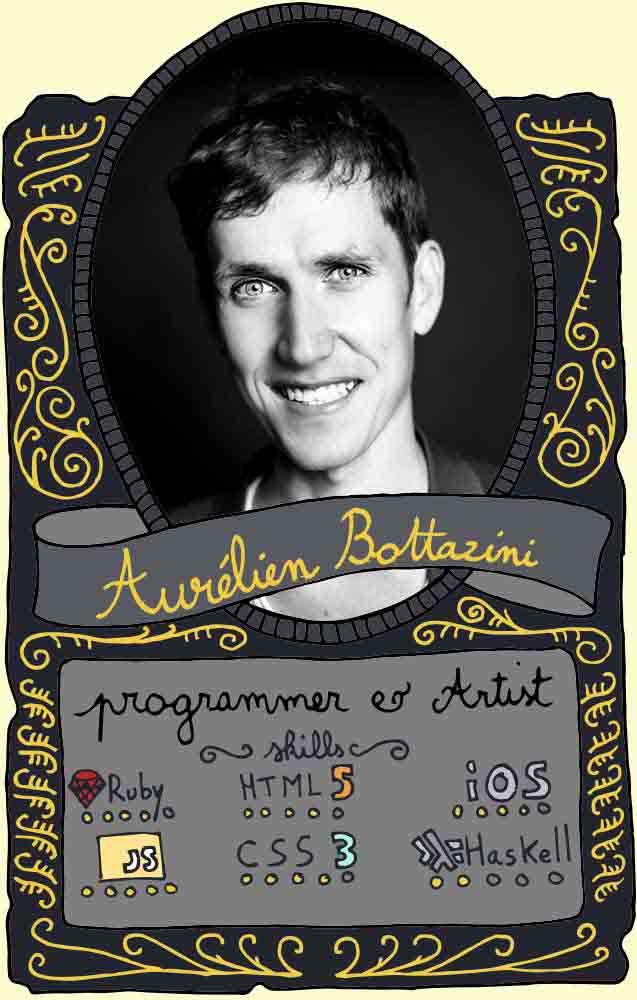 Aurélien Bottazini
programmer & Artist
skills
Ruby HTML5 iOS
JS CSS3 Haskell